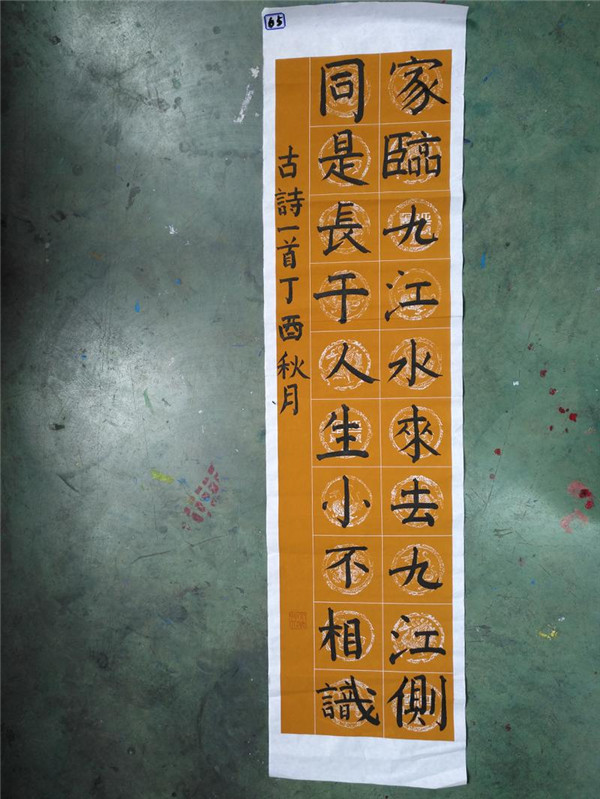 65
家臨九江水來去九江側
同是長干人生小不相識
古詩一首丁酉秋月